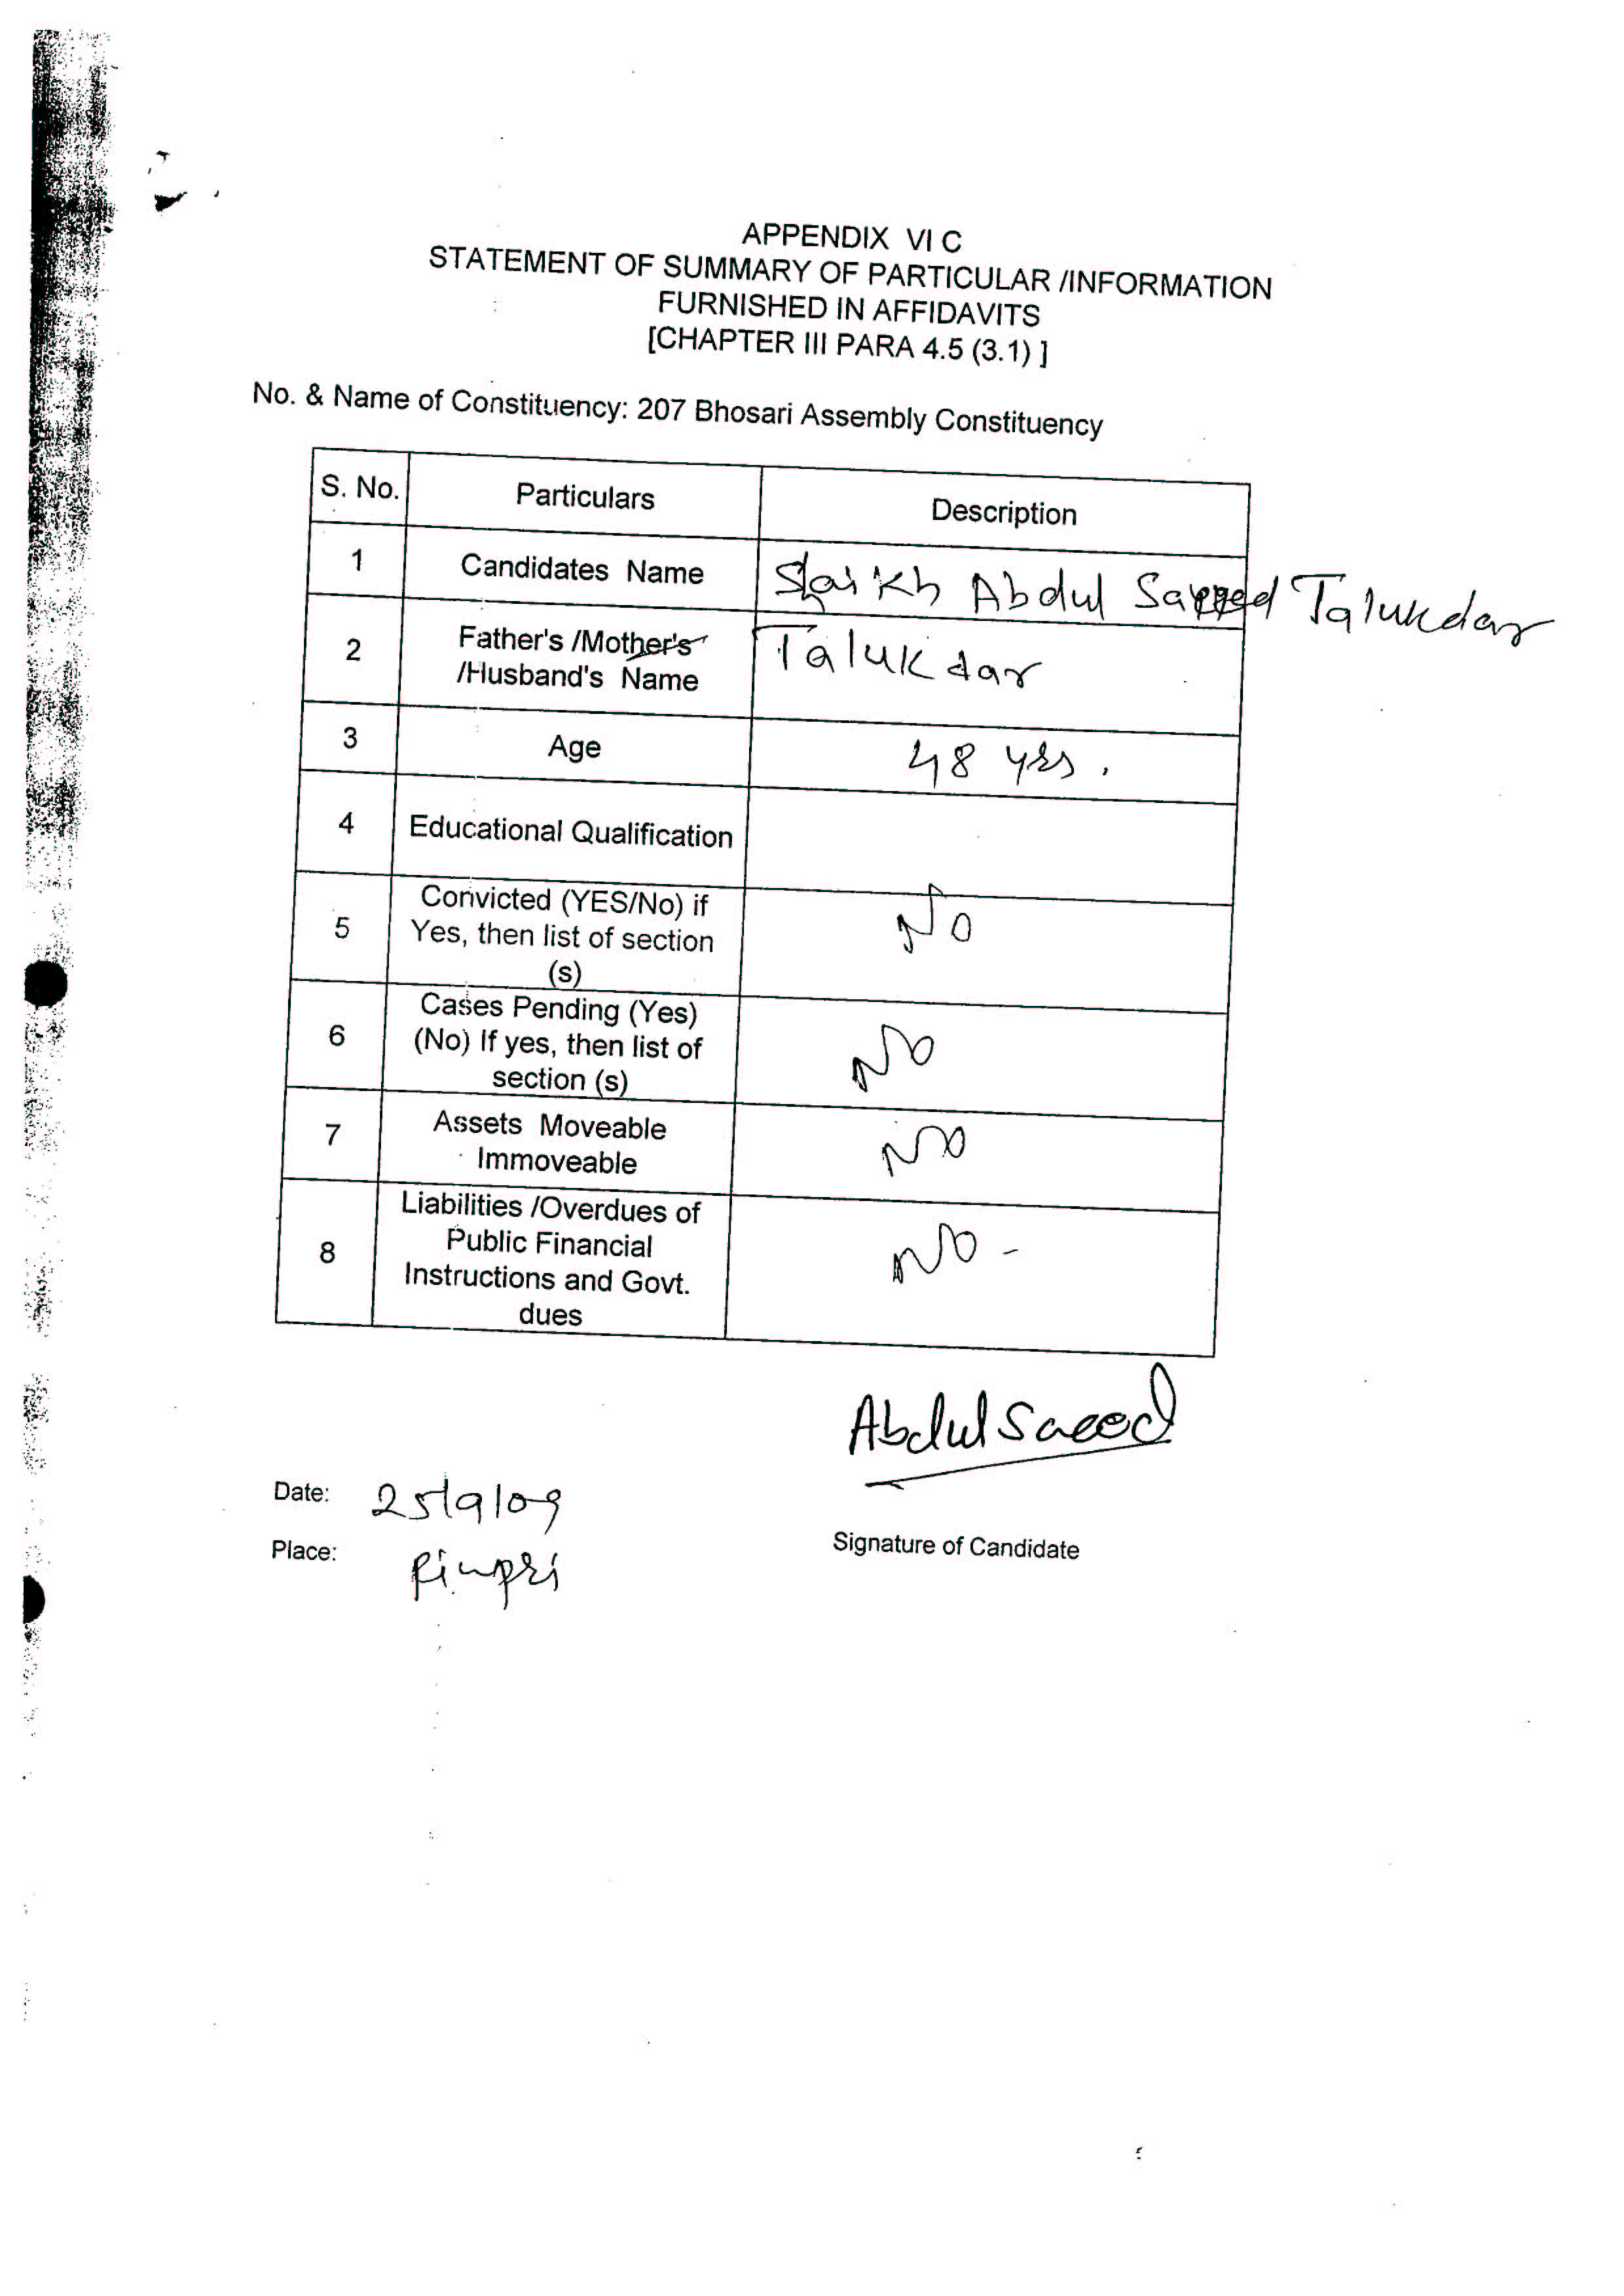 APPENDIX VI C
STATEMENT OF SUMMARY OF PARTICULAR /INFORMATION
FURNISHED IN AFFIDAVITS
[CHAPTER III PARA 4.5 (3.1) ]
No. & Name of Constituency: 207 Bhosari Assembly Constituency
S. No. Particulars Description
1 Candidates Name Shaikh Abdul Sayeed Talukdar
2 Father's /Mother's
/Husband's Name Talukdar
3 Age 48 yrs.
4 Educational Qualification
5 Convicted (YES/No) if
Yes, then list of section
(s) No
6 Cases Pending (Yes)
(No) If yes, then list of
section (s) No
7 Assets Moveable
Immoveable No
8 Liabilities /Overdues of
Public Financial
Instructions and Govt.
dues No -
Abdul Saeed
Date: 25/9/09
Signature of Candidate
Place: Pimpri